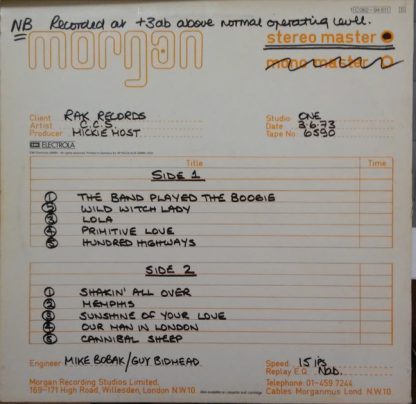 1C 062-94 911
NB Recorded at +3db above normal operating level.
morgan
stereo master
mono master
Client RAK RECORDS
Artist C.C.S.
Producer MICKIE MOST
Studio ONE
Date 3.6.73
Tape No 6590
EMI ELECTROLA
Title Time
SIDE 1
1 THE BAND PLAYED THE BOOGIE
2 WILD WITCH LADY
3 LOLA
4 PRIMITIVE LOVE
5 HUNDRED HIGHWAYS
SIDE 2
1 SHAKIN' ALL OVER
2 MEMPHIS
3 SUNSHINE OF YOUR LOVE
4 OUR MAN IN LONDON
5 CANNIBAL SHEEP
Engineer MIKE BOBAK/GUY BIDMEAD
Speed 15 ips
Replay E.Q. NAB.
Morgan Recording Studios Limited.
169–171 High Road, Willesden, London N.W.10.
Telephone: 01–459 7244
Cables Morganmus Lond. N.W.10